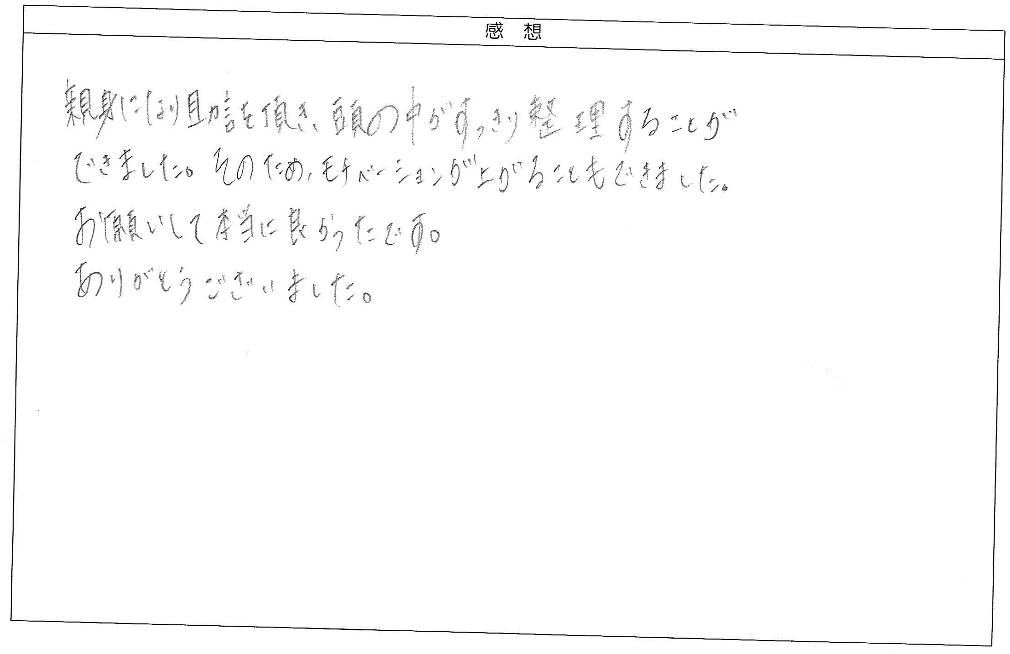 感想
親身になり助言を頂き、頭の中がすっきり整理することが
できました。そのため、モチベーションが上がることもできました。
お願いして本当に良かったです。
ありがとうございました。